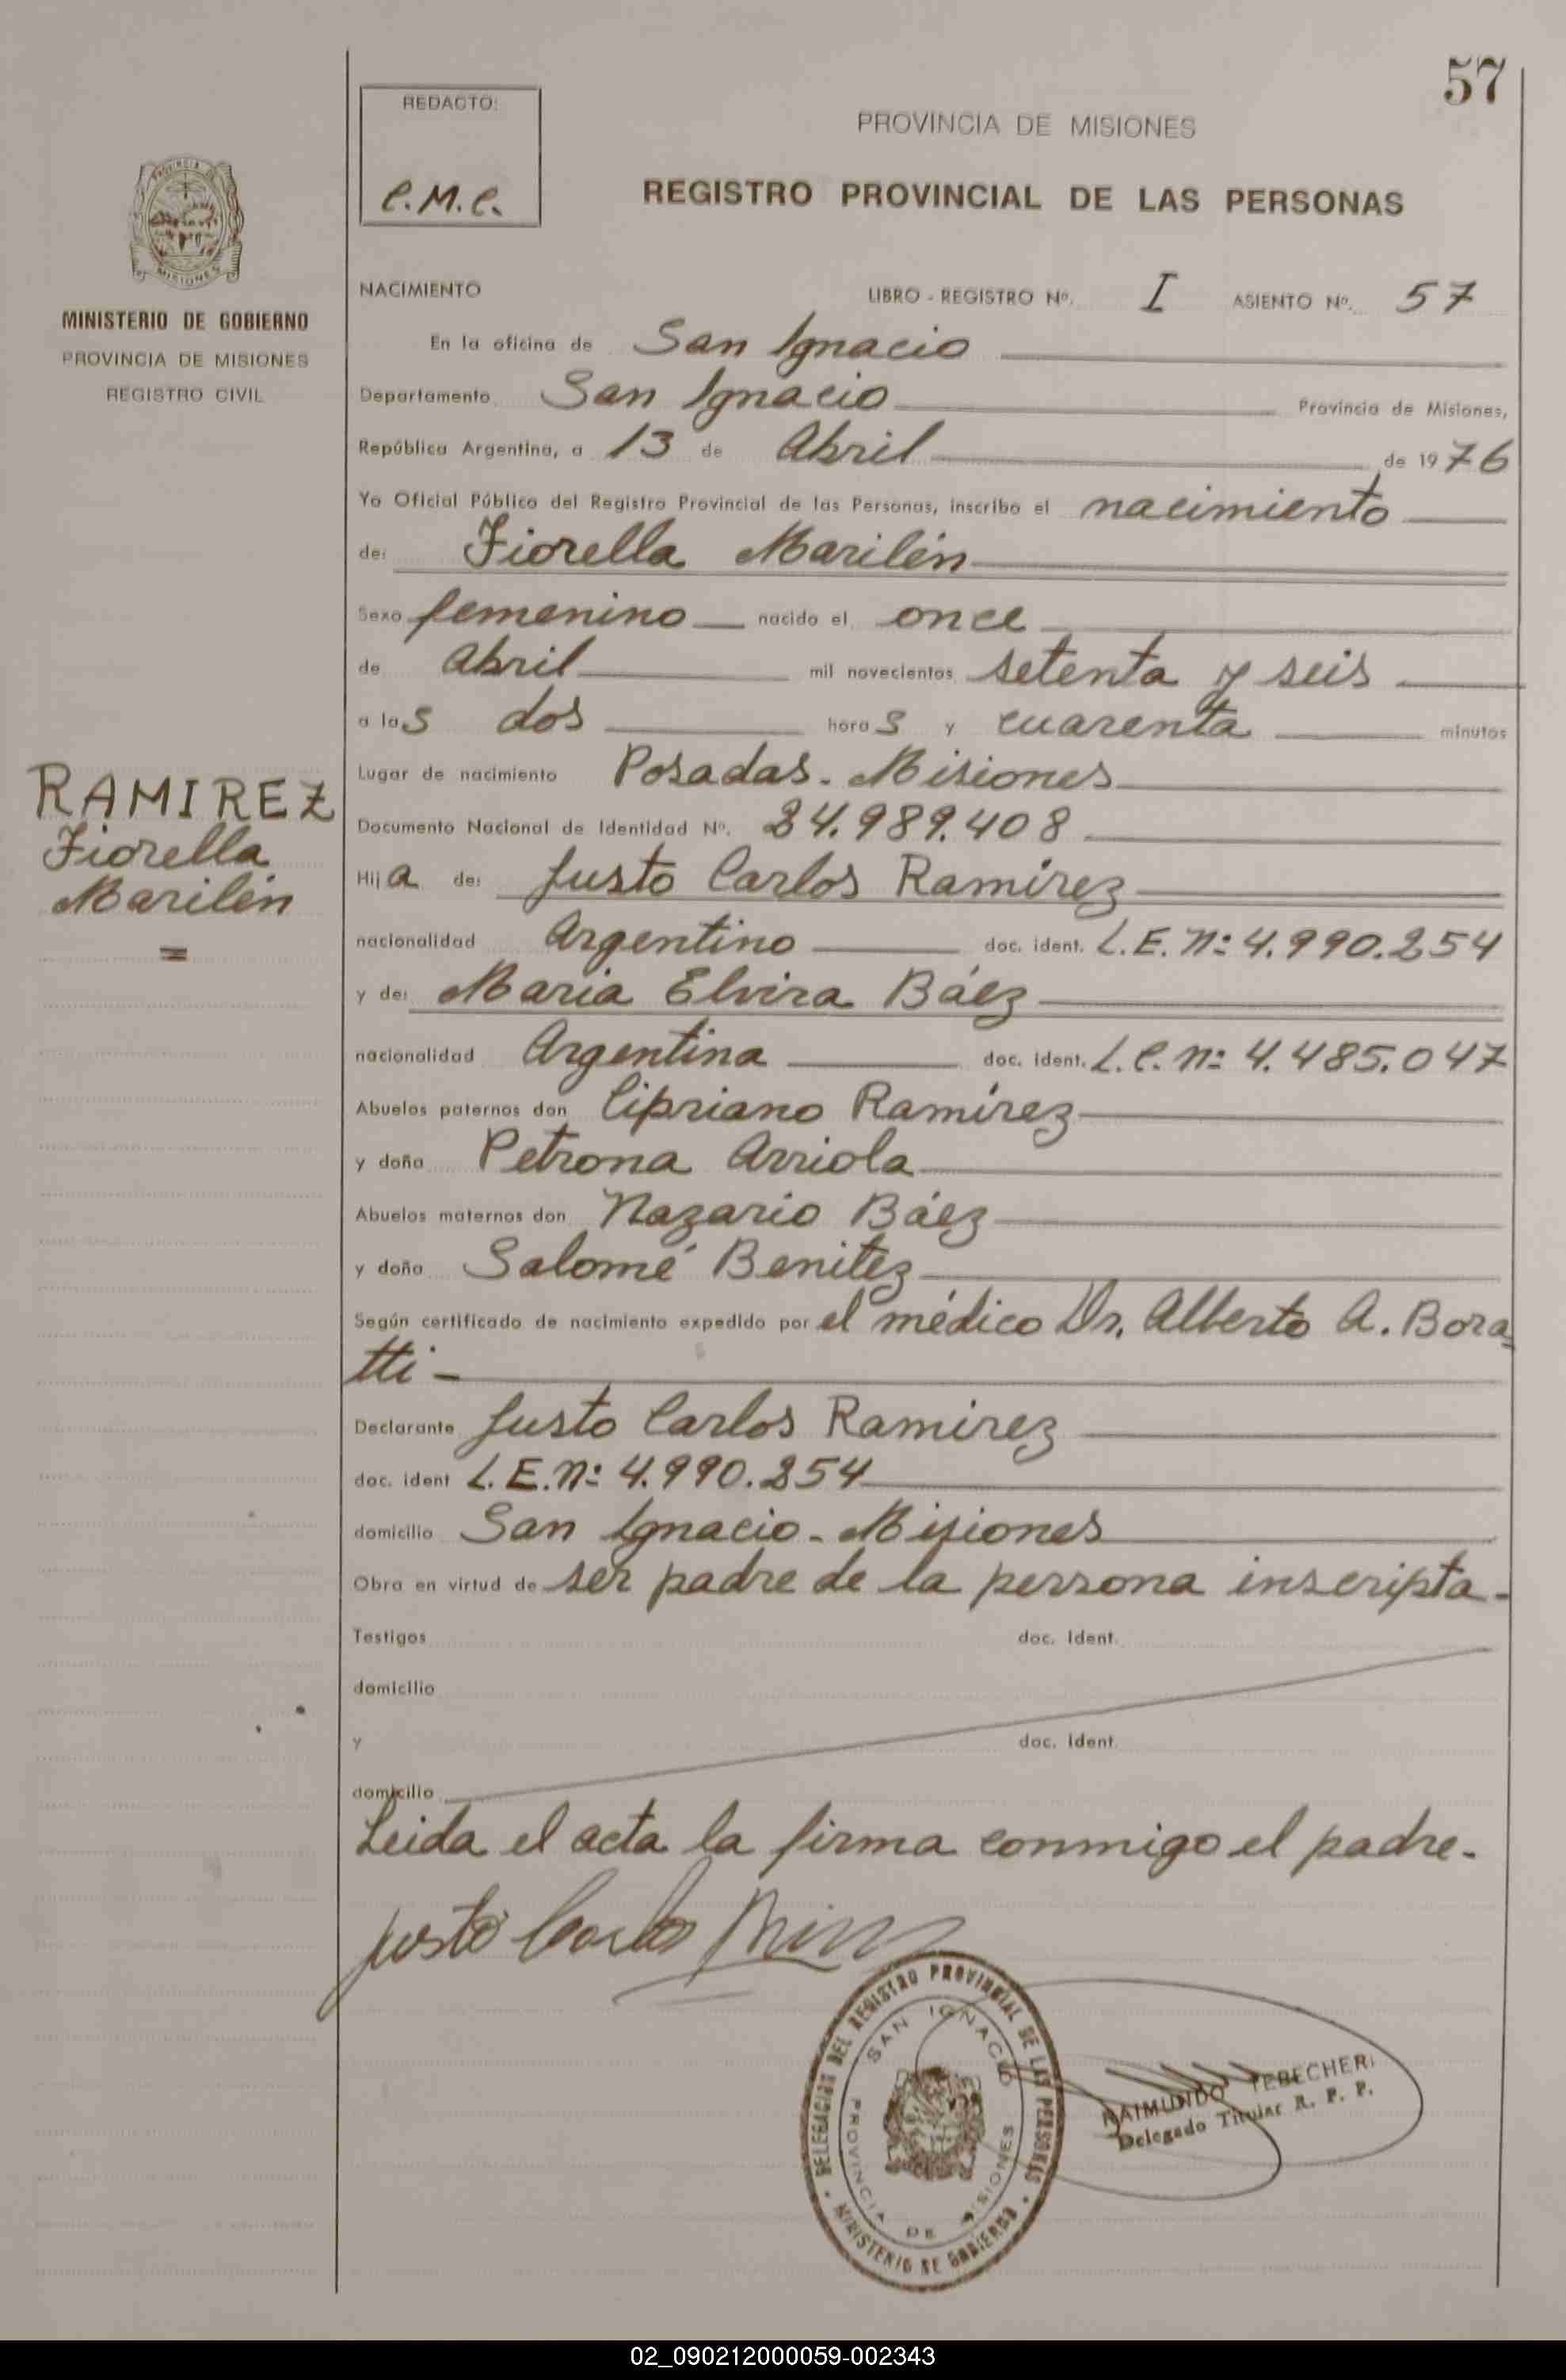 57
REDACTO:
C.M.C.
PROVINCIA DE MISIONES
REGISTRO PROVINCIAL DE LAS PERSONAS
MINISTERIO DE GOBIERNO
PROVINCIA DE MISIONES
REGISTRO CIVIL
RAMIREZ
Fiorella
Marilén
NACIMIENTO LIBRO - REGISTRO Nº. I ASIENTO Nº. 57
En la oficina de San Ignacio
Departamento San Ignacio Provincia de Misiones,
República Argentina, a 13 de Abril de 1976
Yo Oficial Público del Registro Provincial de las Personas, inscribo el nacimiento
de: Fiorella Marilén
Sexo femenino nacido el once
de Abril mil novecientos setenta y seis
a las dos horas y cuarenta minutos
Lugar de nacimiento Posadas - Misiones
Documento Nacional de Identidad Nº. 24.989.408
Hija de: Justo Carlos Ramírez
nacionalidad Argentino doc. ident. L.E. Nº: 4.990.254
y de: María Elvira Báez
nacionalidad Argentina doc. ident. L.C. nº: 4.485.047
Abuelos paternos don Cipriano Ramírez
y doña Petrona Arriola
Abuelos maternos don Nazario Báez
y doña Salomé Benitez
Según certificado de nacimiento expedido por el médico Dr. Alberto A. Bora
tti -
Declarante Justo Carlos Ramírez
doc. ident L.E. Nº: 4.990.254
domicilio San Ignacio - Misiones
Obra en virtud de ser padre de la persona inscripta -
Testigos doc. ident.
domicilio
y doc. ident.
domicilio
Leida el acta la firma conmigo el padre -
Justo Carlos
DELEGACION DEL REGISTRO PROVINCIAL DE LAS PERSONAS
MINISTERIO DE GOBIERNO
SAN IGNACIO
PROVINCIA DE MISIONES
RAIMUNDO TEBECHERI
Delegado Titular R. P. P.
02_090212000059-002343